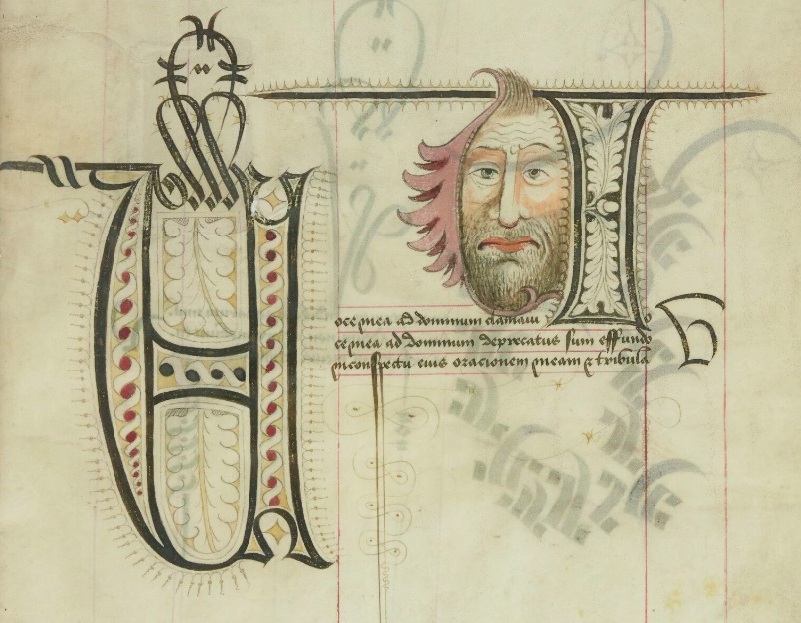 Voce mea ad dominum clamaui Vo
ce mea ad dominum deprecatus sum effundo
in conspectu eius oracionem meam & tribula